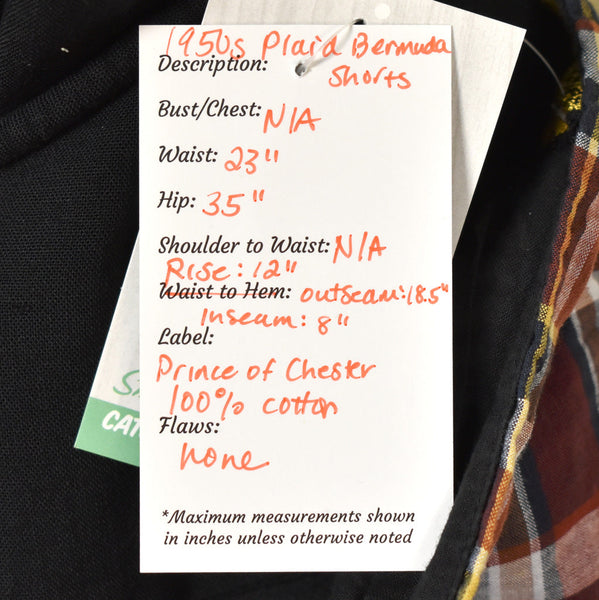 1950s Plaid Bermuda
Description: Shorts
Bust/Chest: N/A
Waist: 23"
Hip: 35"
Shoulder to Waist: N/A
Rise: 12"
Waist to Hem: outseam: 18.5"
Inseam: 8"
Label:
Prince of Chester
100% cotton
Flaws:
none
*Maximum measurements shown
in inches unless otherwise noted